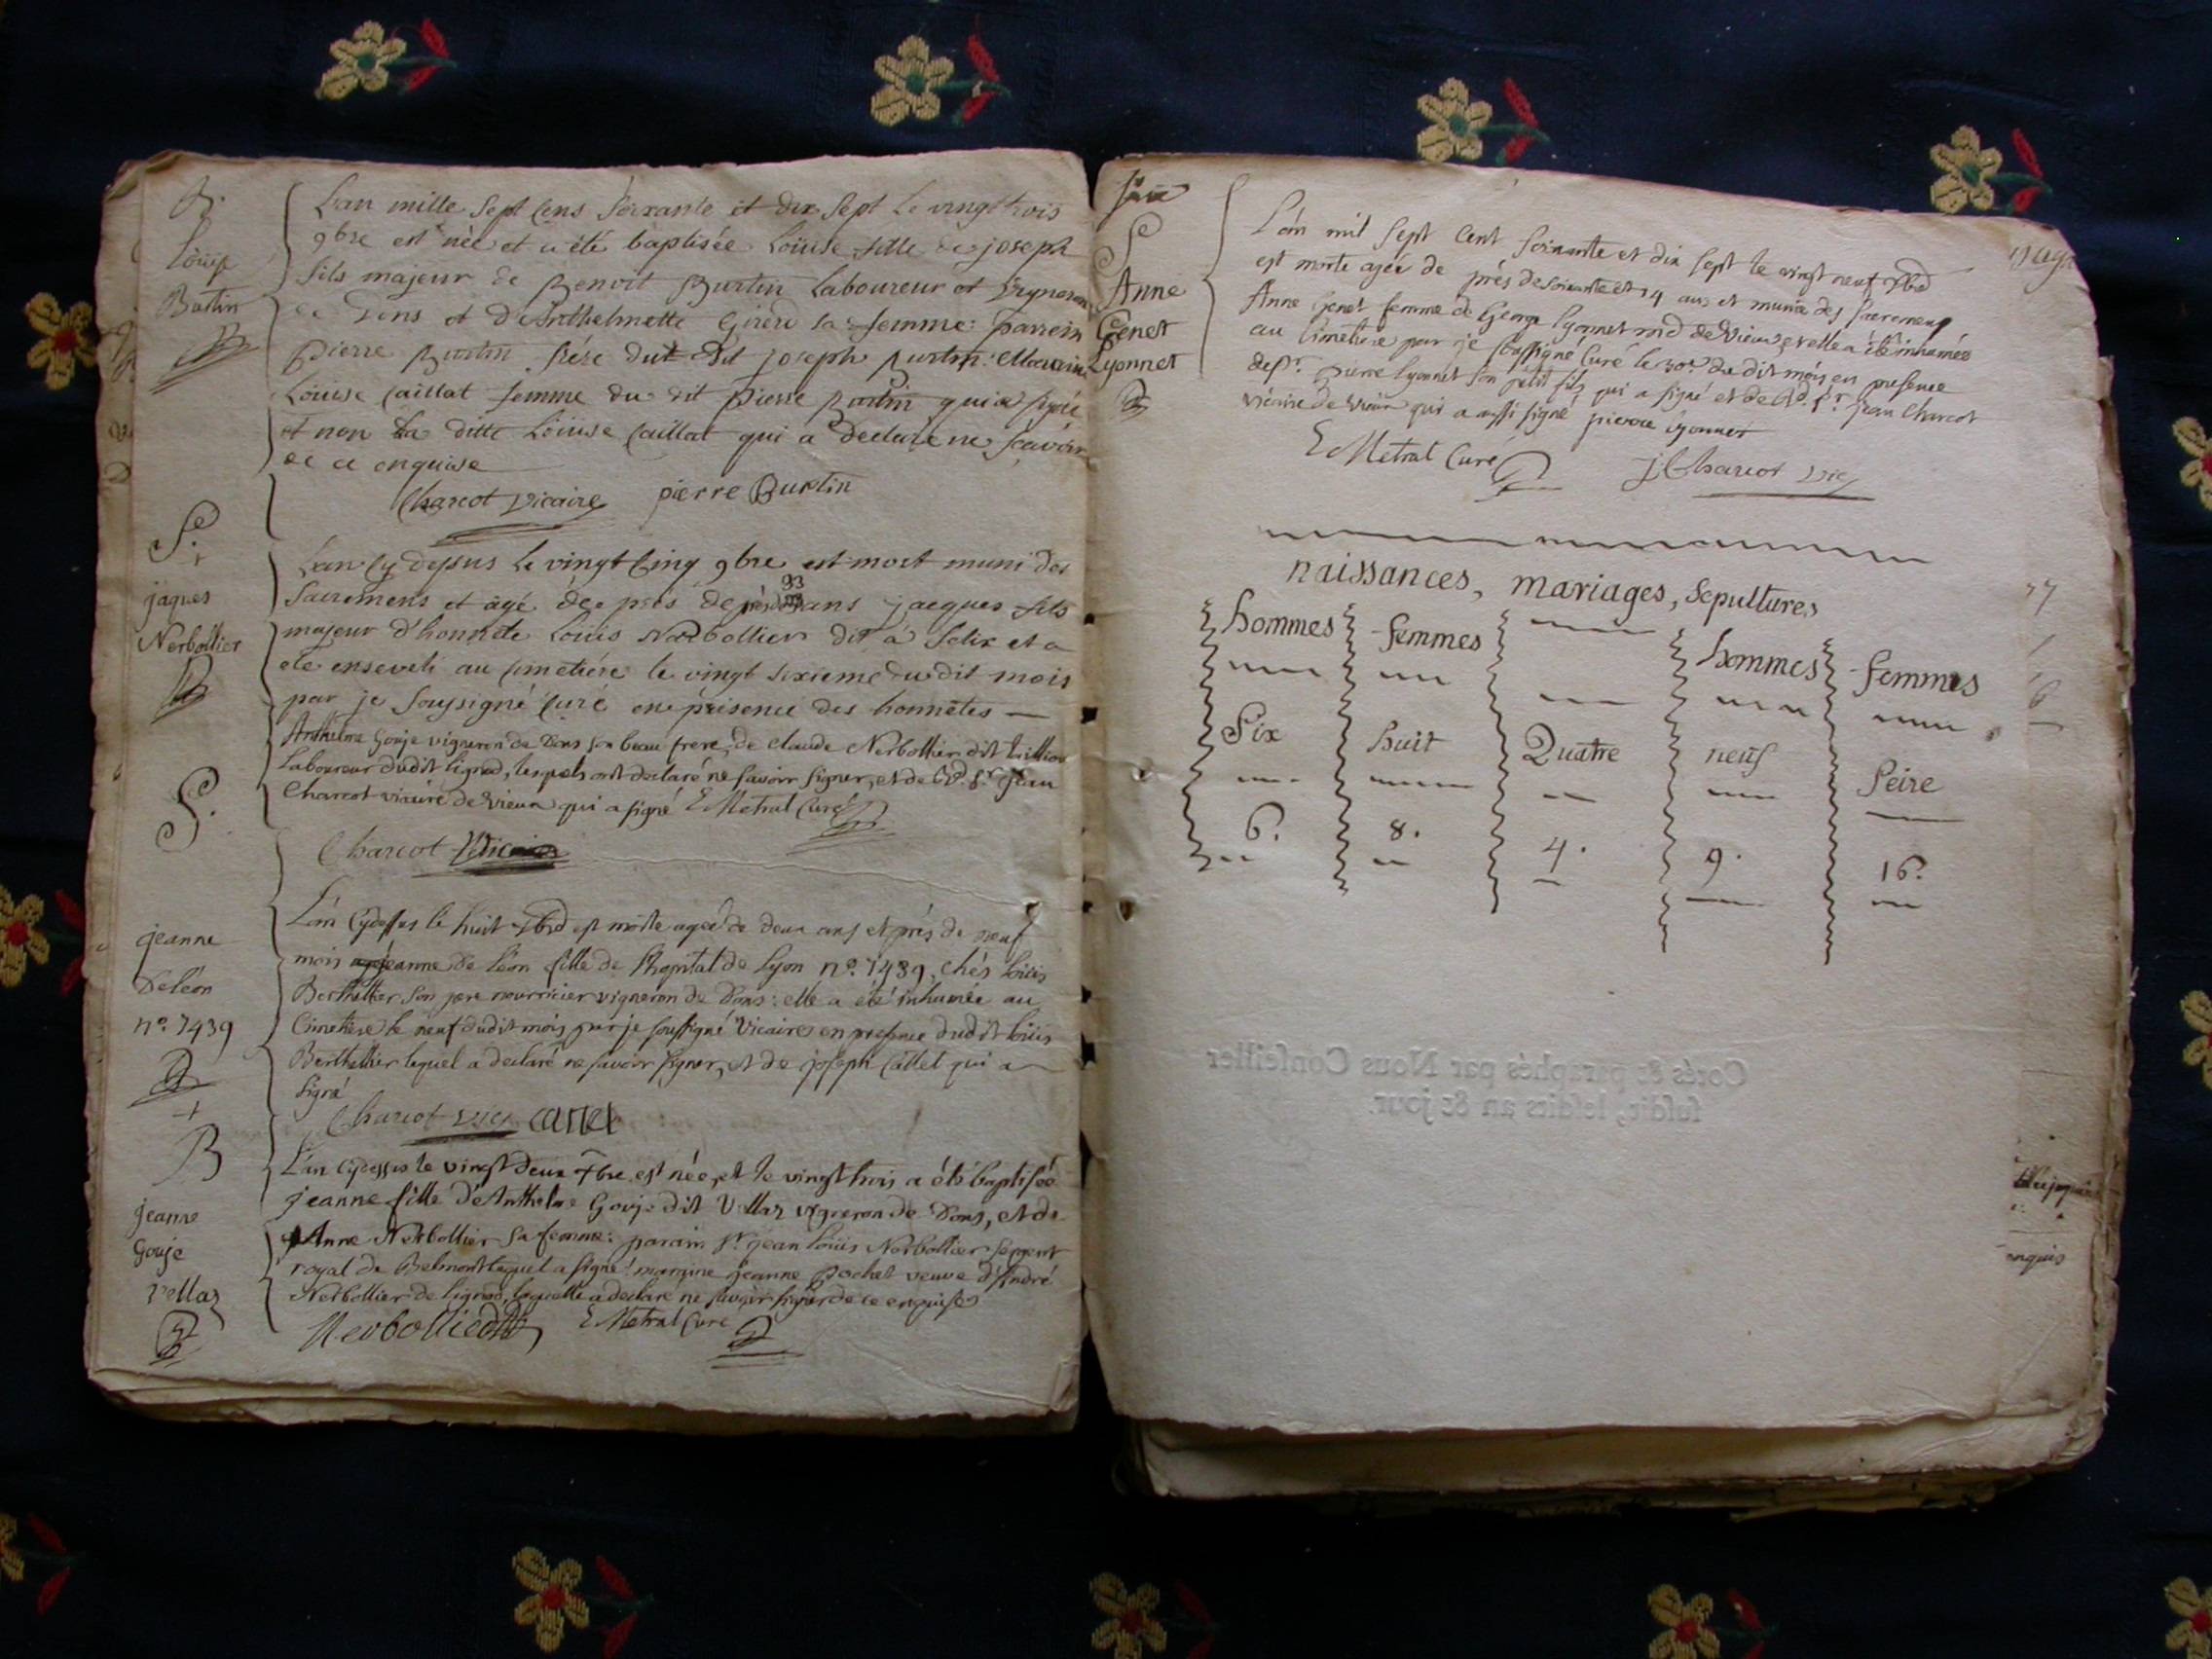 B.
Loüise
Burtin
L'an mille Sept Cens Soixante et dix Sept le vingt trois
9bre est née et a été baptisée Loüise fille de joseph
fils majeur de Benoit Burtin Laboureur et Vigneron
de Dons et d'Anthelmette Girerd sa femme: parrein
Pierre Burtin frére dut dit joseph Burtin: Marraine
Loüise Caillat femme du dit Pierre Burtin qui a signé
et non la ditte Loüise Caillat qui a déclaré ne sçavoir
de ce enquise
Charcot Vicaire pierre Burtin
S.
jaques
Nerbollier
L'an cy dessus le vingt Cinq 9bre est mort muni des
Sacremens et agé de près de ans jacques fils
majeur d'honnete Loüis Nerbollier dit à felix et a
eté enseveli au Cimetiére le vingt sixieme du dit mois
par je Soussigné Curé en présence des honnêtes
Anthelme Gouje vigneron de Dons son beau frere, de Claude Nerbollier dit
Laboureur dudit lignod, lesquels ont declaré ne savoir signer, et de Rd. Sr. jean
Charcot vicaire de Vieux qui a signé E Metral Curé
Charcot Vicaire
S.
jeanne
Deléon
no. 7439
L'an cydessus le huit Xbre est morte agée de deux ans et près de neuf
mois jeanne de léon fille de l'hopital de Lyon no. 7439, chés loüis
Berthellier son pere nourricier vigneron de Dons: elle a été inhumée au
Cimetiere le neuf dudit mois par je soussigné Vicaire en presence dudit loüis
Berthellier lequel a declaré ne savoir signer, et de joseph Callet qui a
signé
Charcot Vic callet
B
jeanne
Gouje
Vellaz
L'an cydessus le vingt deux Xbre est née, et le vingt trois a été baptisée
jeanne fille d'Anthelme Gouje dit Vellaz vigneron de Dons, et de
Anne Nerbollier sa femme: parain Sr. jean loüis Nerbollier sergent
royal de Belmont lequel a signé: maraine jeanne Pochet veuve d'André
Nerbollier de lignod, laquelle a declaré ne savoir signer de ce enquise
Nerbollier E Metral Curé
S
Anne
Genet
Lyonnet
L'an mil sept cent soixante et dix sept le vingt neuf Xbre
est morte agée de près de soixante et 14 ans et munie des sacremens
Anne Genet femme de George Lyonnet md de Vieux, et elle a été inhumée
au Cimetiere par je soussigné Curé le 30e du dit mois en presence
de Sr. pierre lyonnet son petit fils qui a signé et de Rd. Sr. jean Charcot
vicaire de vieux qui a aussi signé pierre lyonnet
E Metral Curé J Charcot vic
naissances, mariages, sepultures
hommes femmes hommes femmes
Six huit Quatre neuf Seize
6. 8. 4. 9. 16.
77
6
Cotés & paraphés par Nous Conseiller
susdit, lesdits an & jour.
enquis